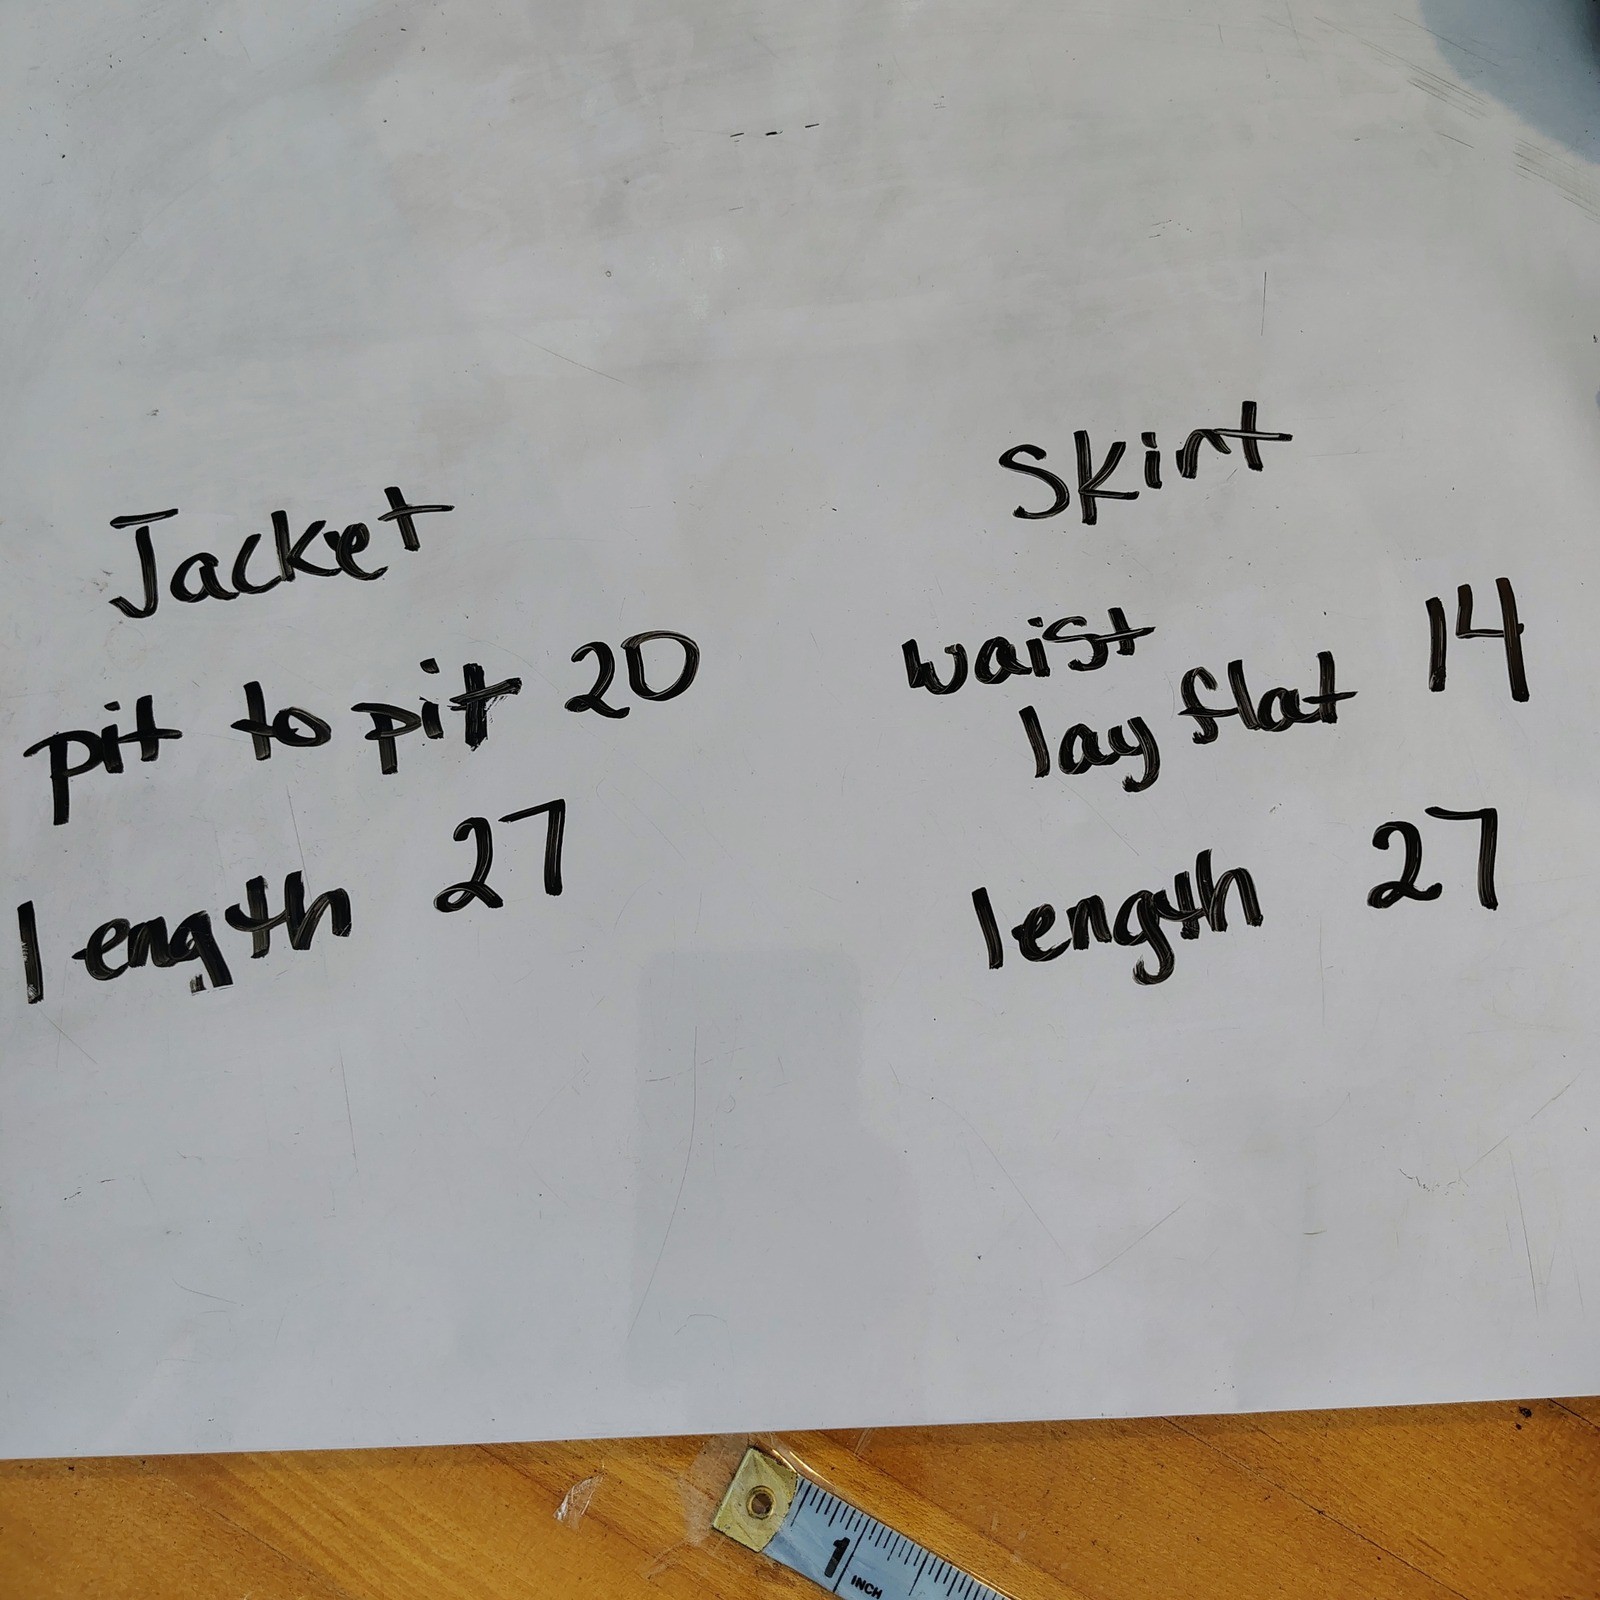 Jacket
pit to pit 20
length 27
Skirt
waist
lay flat 14
length 27
1
INCH